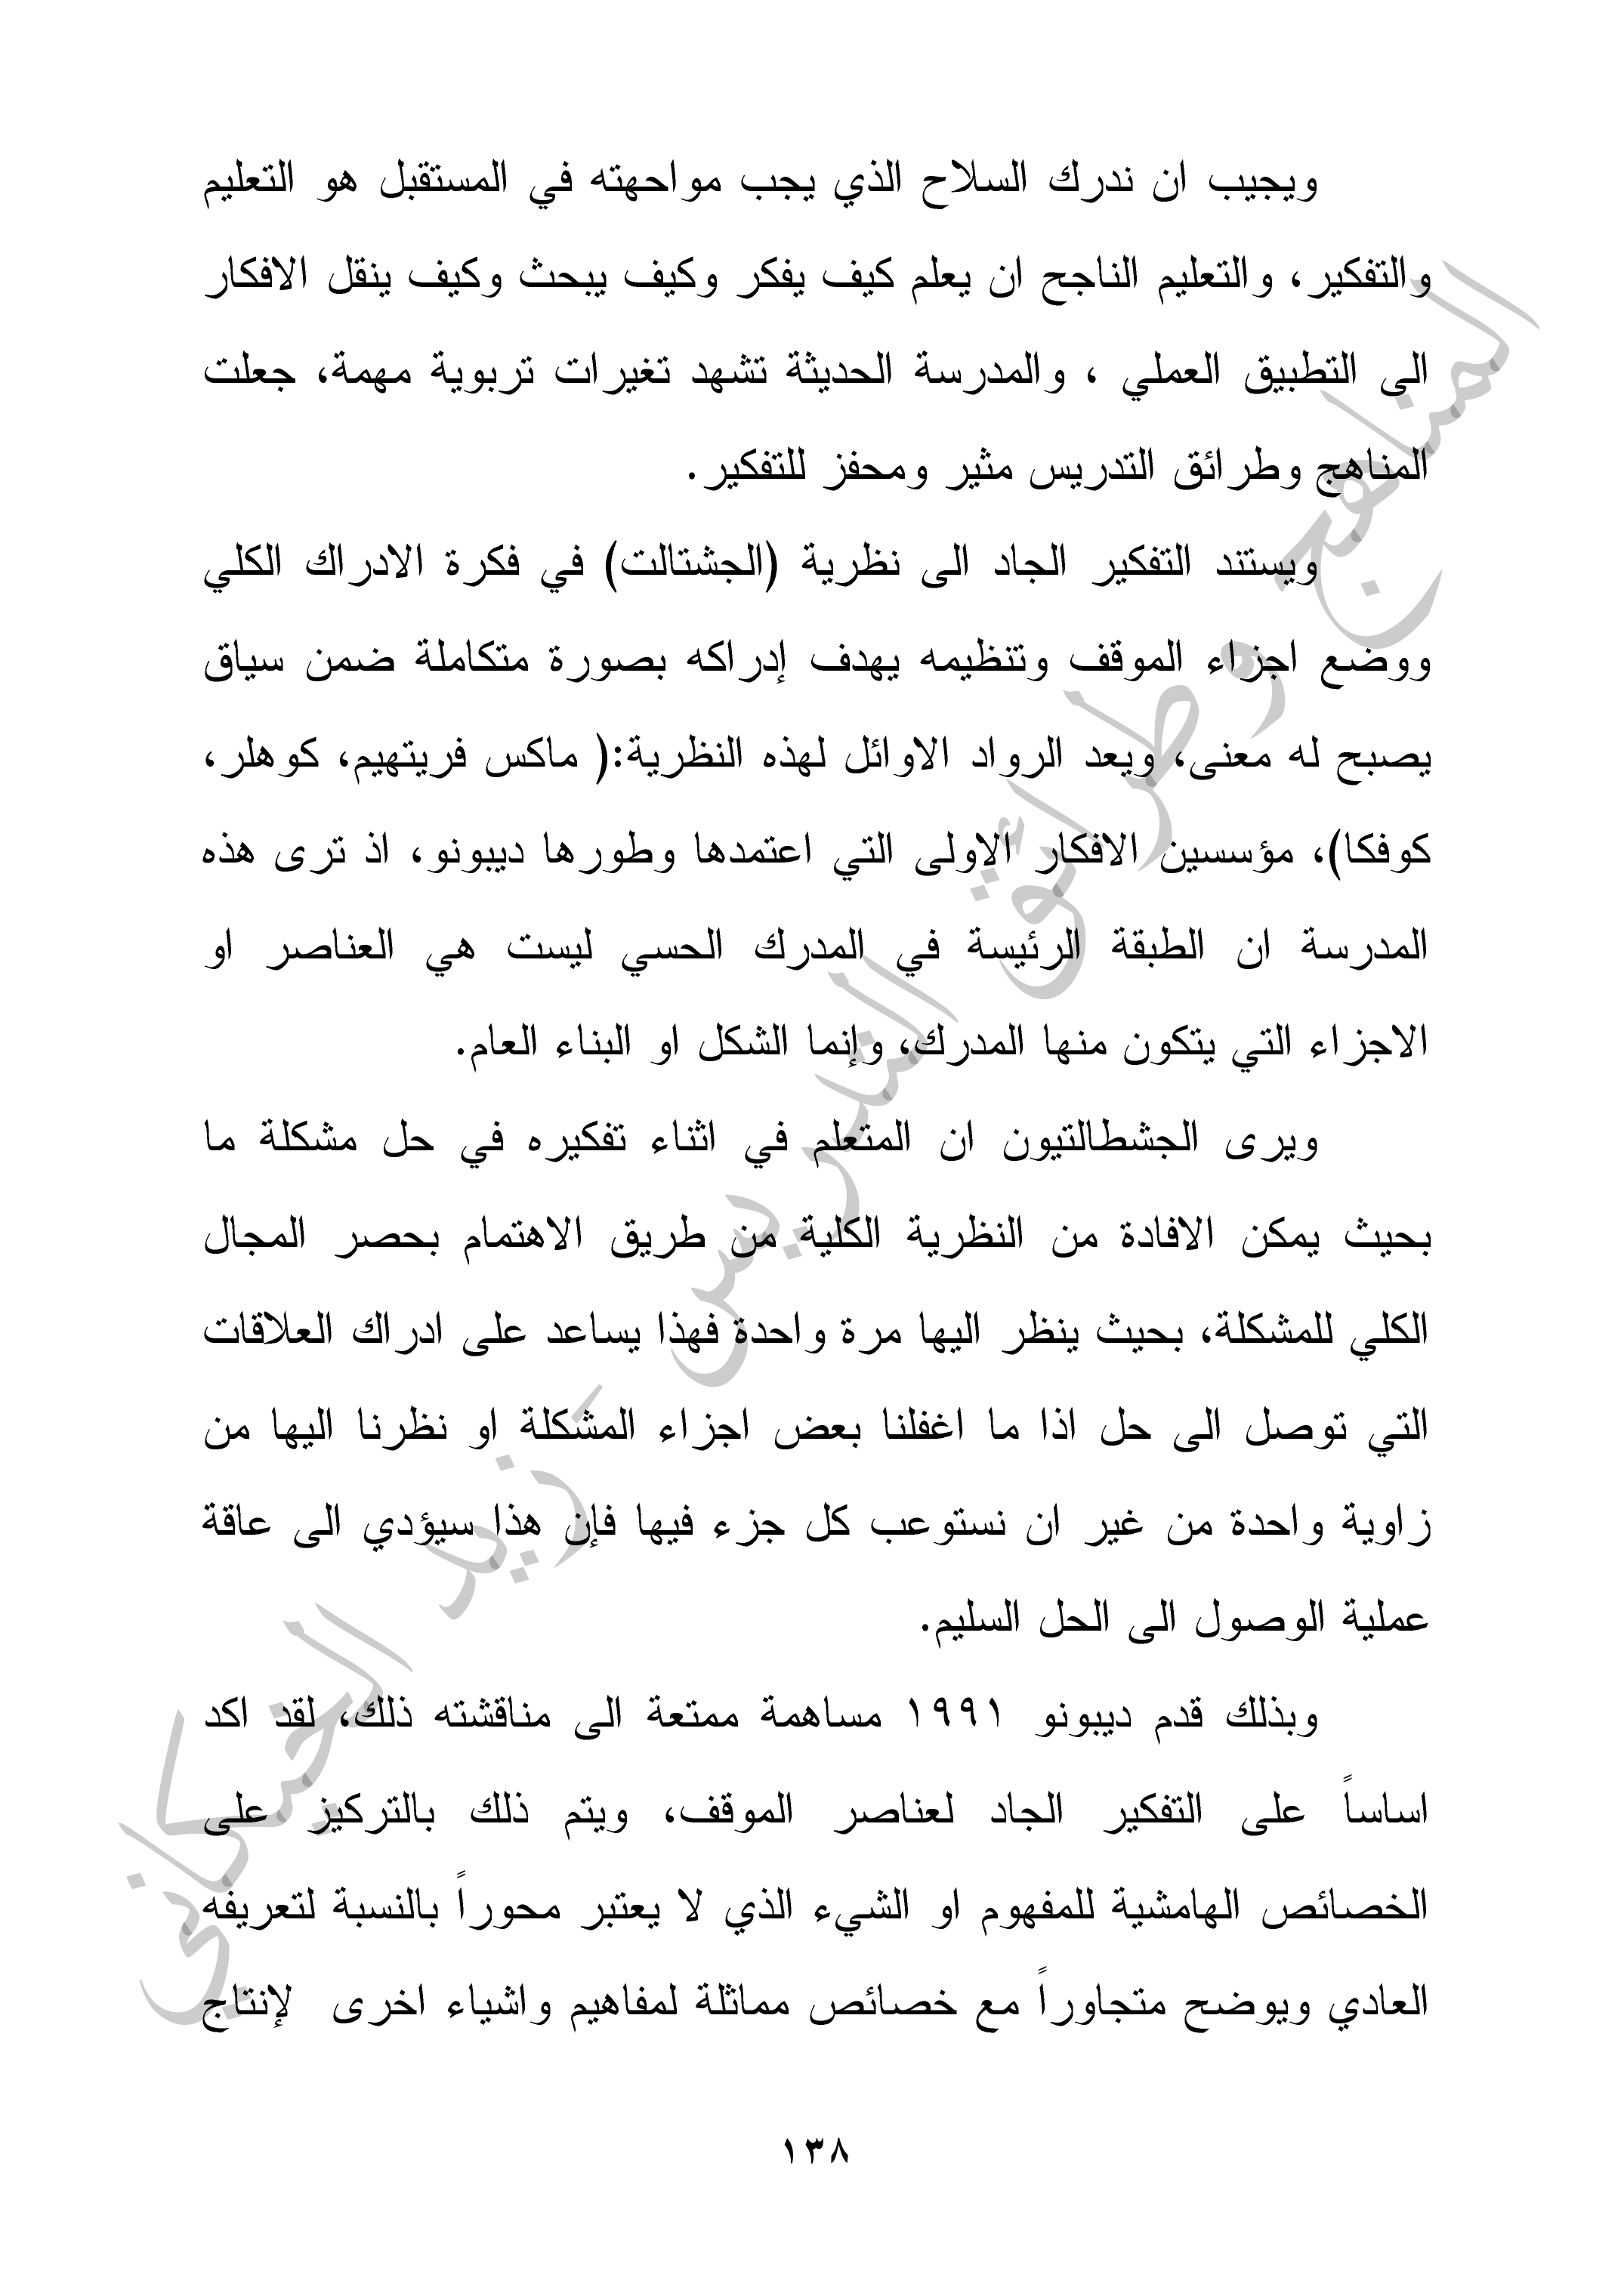 ويجيب ان ندرك السلاح الذي يجب مواحهته في المستقبل هو التعليم
والتفكير، والتعليم الناجح ان يعلم كيف يفكر وكيف يبحث وكيف ينقل الافكار
الى التطبيق العملي ، والمدرسة الحديثة تشهد تغيرات تربوية مهمة، جعلت
المناهج وطرائق التدريس مثير ومحفز للتفكير.
ويستند التفكير الجاد الى نظرية (الجشتالت) في فكرة الادراك الكلي
ووضع اجزاء الموقف وتنظيمه يهدف إدراكه بصورة متكاملة ضمن سياق
يصبح له معنى، ويعد الرواد الاوائل لهذه النظرية:( ماكس فريتهيم، كوهلر،
كوفكا)، مؤسسين الافكار الاولى التي اعتمدها وطورها ديبونو، اذ ترى هذه
المدرسة ان الطبقة الرئيسة في المدرك الحسي ليست هي العناصر او
الاجزاء التي يتكون منها المدرك، وإنما الشكل او البناء العام.
ويرى الجشطالتيون ان المتعلم في اثناء تفكيره في حل مشكلة ما
بحيث يمكن الافادة من النظرية الكلية من طريق الاهتمام بحصر المجال
الكلي للمشكلة، بحيث ينظر اليها مرة واحدة فهذا يساعد على ادراك العلاقات
التي توصل الى حل اذا ما اغفلنا بعض اجزاء المشكلة او نظرنا اليها من
زاوية واحدة من غير ان نستوعب كل جزء فيها فإن هذا سيؤدي الى عاقة
عملية الوصول الى الحل السليم.
وبذلك قدم ديبونو ١٩٩١ مساهمة ممتعة الى مناقشته ذلك، لقد اكد
اساساً على التفكير الجاد لعناصر الموقف، ويتم ذلك بالتركيز على
الخصائص الهامشية للمفهوم او الشيء الذي لا يعتبر محوراً بالنسبة لتعريفه
العادي ويوضح متجاوراً مع خصائص مماثلة لمفاهيم واشياء اخرى لإنتاج
١٣٨
المناهج وطرائق التدريس - زيد الخيكاني